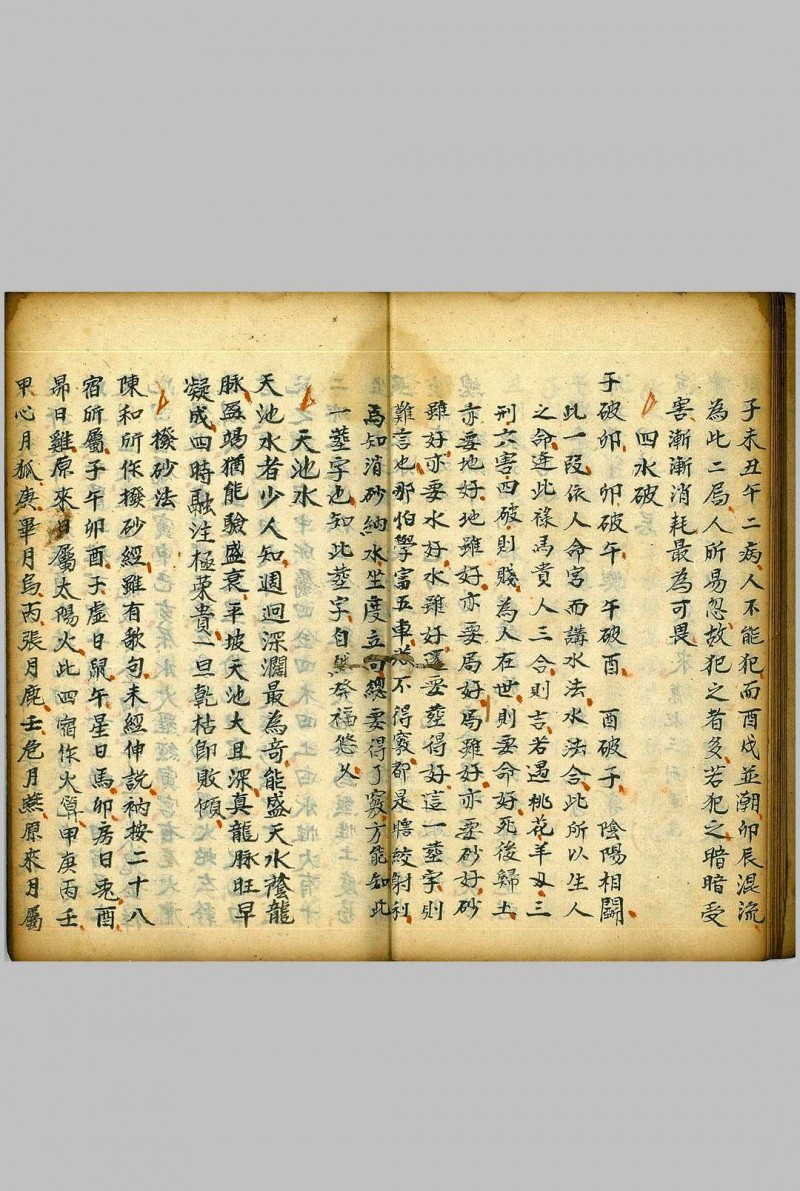 子未丑午二病人不能犯而酉戌並潮卯辰混流
為此二局人所易忽故犯之者多若犯之暗暗受
害漸漸消耗最為可畏
四水破
子破卯 卯破午 午破酉 酉破子 陰陽相鬪
此一段依人命宮而講水法水法合此所以生人
之命逢此祿馬貴人三合則吉若遇桃花羊刃三
刑六害四破則賤為人在世則要命好死後歸土
亦要地好地雖好亦要局好局雖好亦要砂好砂
雖好亦要水好水雖好還要塟得好這一塟字則
難言也那怕學富五車 不得竅都是瞎絞射利
焉知消砂納水坐度立向總要得了竅方能知此
一塟字也知此塟字自然發福悠久
天池水
天池水者少人知週迴深濶最為竒能盛天水蔭龍
脉盈竭猶能驗盛衰平坡天池大且深真龍脉旺早
凝成四時融注極荣貴一旦乾枯即敗傾
撥砂法
陳和所作撥砂經雖有歌句未經伸説衲按二十八
宿所屬子午卯酉子虛日鼠午星日馬卯房日兎酉
昴日雞原來日屬太陽火此四宿作火算甲庚丙壬
甲心月狐庚畢月烏丙張月鹿壬危月燕原來月屬